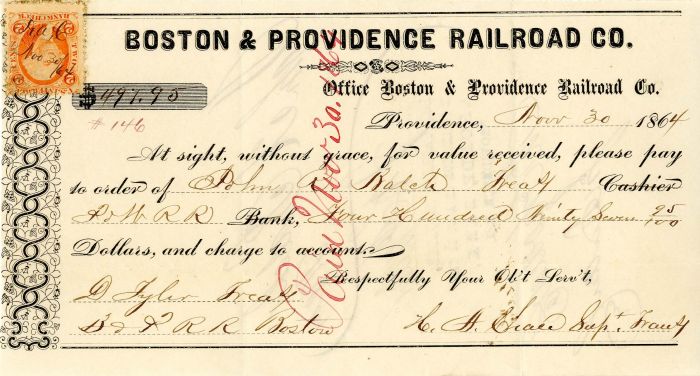 BOSTON & PROVIDENCE RAILROAD CO.
Office Boston & Providence Railroad Co.
$ 497.95
# 146
Providence, Novr 30 1864
At sight, without grace, for value received, please pay
to order of John Balch Treas Cashier
P & W R R Bank, Four Hundred Ninty Seven 95/100
Dollars, and charge to account.
Respectfully Your Ob't Serv't,
D Tyler Treas
B & P R R Boston
Supt. Transp
Paid Novr 30. 1864